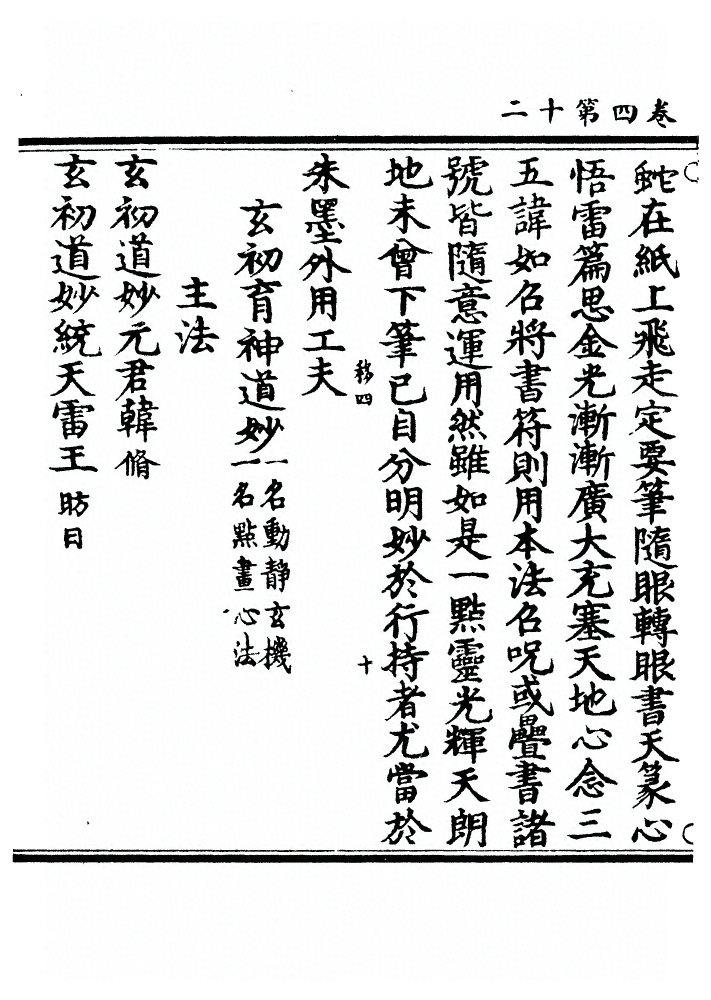 卷四第十二
蛇在紙上飛走定要筆隨眼轉眼書天篆心
悟雷篇思金光漸漸廣大充塞天地心念三
五諱如召將書符則用本法召呪或疊書諸
號皆隨意運用然雖如是一點靈光輝天朗
地未曾下筆已自分明妙於行持者尤當於
移四 十
朱墨外用工夫
玄初育神道妙一名動靜玄機一名點畫心法
主法
玄初道妙元君韓脩
玄初道妙統天雷王昉日